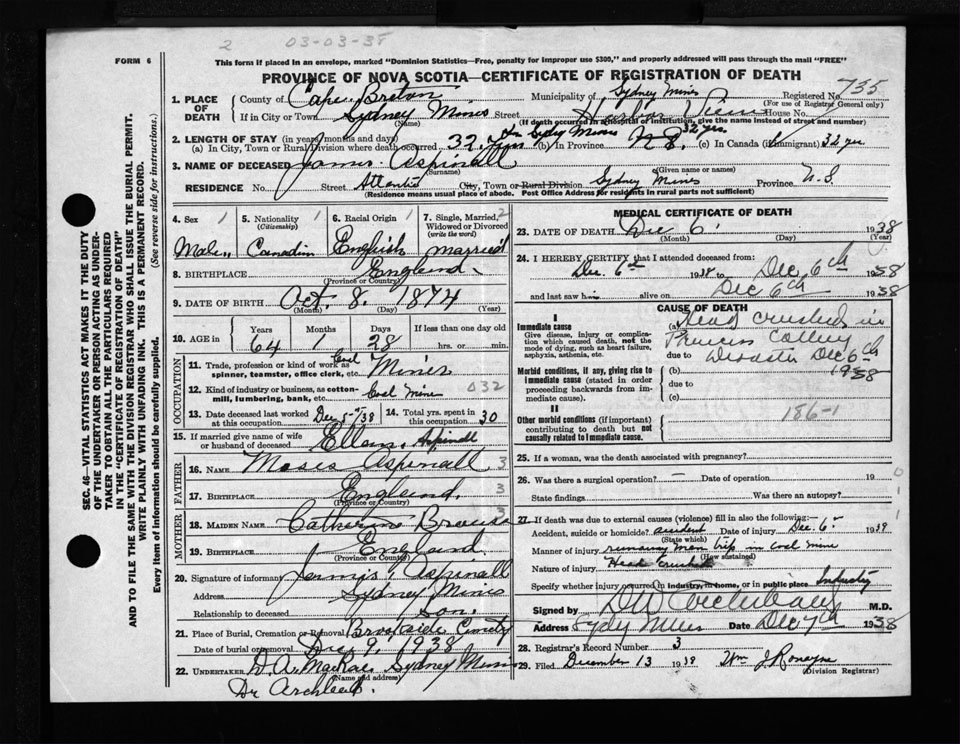 2 03-03-38
FORM 6
This form if placed in an envelope, marked "Dominion Statistics—Free, penalty for improper use $300," and properly addressed will pass through the mail "FREE"
PROVINCE OF NOVA SCOTIA—CERTIFICATE OF REGISTRATION OF DEATH
SEC. 46—VITAL STATISTICS ACT MAKES IT THE DUTY
OF THE UNDERTAKER OR PERSON ACTING AS UNDER-
TAKER TO OBTAIN ALL THE PARTICULARS REQUIRED
IN THE "CERTIFICATE OF REGISTRATION OF DEATH"
AND TO FILE THE SAME WITH THE DIVISION REGISTRAR WHO SHALL ISSUE THE BURIAL PERMIT.
WRITE PLAINLY WITH UNFADING INK. THIS IS A PERMANENT RECORD.
Every item of Information should be carefully supplied. (See reverse side for instructions.)
1. PLACE OF DEATH
County of Cape Breton Municipality of Sydney Mines Registered No. 735
(For use of Registrar General only)
If in City or Town Sydney Mines Street Harbor View House No.
(Name) (If death occurred in hospital or institution, give the name instead of street and number)
2. LENGTH OF STAY (in years, months and days) In Sydy Mines 32 yrs.
(a) In City, Town or Rural Division where death occurred 32 (b) In Province N.S. (c) In Canada (if immigrant) 32 yrs
3. NAME OF DECEASED James Aspinall
(Surname) (Given name or names)
RESIDENCE No. Street Atlantic City, Town or Rural Division Sydney Mines Province N.S.
(Residence means usual place of abode. Post Office Address for residents in rural parts not sufficient)
4. Sex 1 Male
5. Nationality (Citizenship) 1 Canadian
6. Racial Origin 1 English
7. Single, Married, Widowed or Divorced (write the word) 2 married
8. BIRTHPLACE England
(Province or Country)
9. DATE OF BIRTH Oct. 8. 1874
(Month) (Day) (Year)
10. AGE in Years 64 Months 1 Days 28 If less than one day old hrs. or min.
OCCUPATION
11. Trade, profession or kind of work as spinner, teamster, office clerk, etc. Coal Miner
12. Kind of industry or business, as cotton-mill, lumbering, bank, etc. Coal Mine 032
13. Date deceased last worked at this occupation Dec 5-38
14. Total yrs. spent in this occupation 30
15. If married give name of wife or husband of deceased Ellen Aspinall
FATHER
16. NAME Moses Aspinall 3
17. BIRTHPLACE England. 3
(Province or Country)
MOTHER
18. MAIDEN NAME Catherine 3
19. BIRTHPLACE England
(Province or Country)
20. Signature of informant Aspinall
Address Sydney Mines
Relationship to deceased Son.
21. Place of Burial, Cremation or Removal Brookside Cemetry
Date of burial or removal Dec 9, 1938
22. UNDERTAKER D. A. MacRae Sydney Mines
(Name and address)
Dr Archibald.
MEDICAL CERTIFICATE OF DEATH
23. DATE OF DEATH Dec 6 1938
(Month) (Day) (Year)
24. I HEREBY CERTIFY that I attended deceased from:
Dec. 6th 1938 to Dec 6th 1938
and last saw him alive on Dec 6th 1938
CAUSE OF DEATH
I
Immediate cause
Give disease, injury or complication which caused death, not the mode of dying, such as heart failure, asphyxia, asthenia, etc.
(a) Head crushed in
Princess Colliery
due to Disaster Dec 6th
1938
Morbid conditions, if any, giving rise to immediate cause (stated in order proceeding backwards from immediate cause).
(b)
due to
(c)
II
Other morbid conditions (if important) contributing to death but not causally related to immediate cause.
186-1
25. If a woman, was the death associated with pregnancy?
26. Was there a surgical operation? — Date of operation 19
State findings Was there an autopsy?
27. If death was due to external causes (violence) fill in also the following:—
Accident, suicide or homicide? accident Date of injury Dec. 6 1938
(State which)
Manner of injury runaway man trip in coal mine
(How sustained)
Nature of injury Head crushed
Specify whether injury occurred in industry, in home, or in public place Industry
Signed by D W Archibald M.D.
Address Sydy Mines Date Dec 7th 1938
28. Registrar's Record Number 3
29. Filed December 13 1938 Wm J. Romeyne
(Division Registrar)